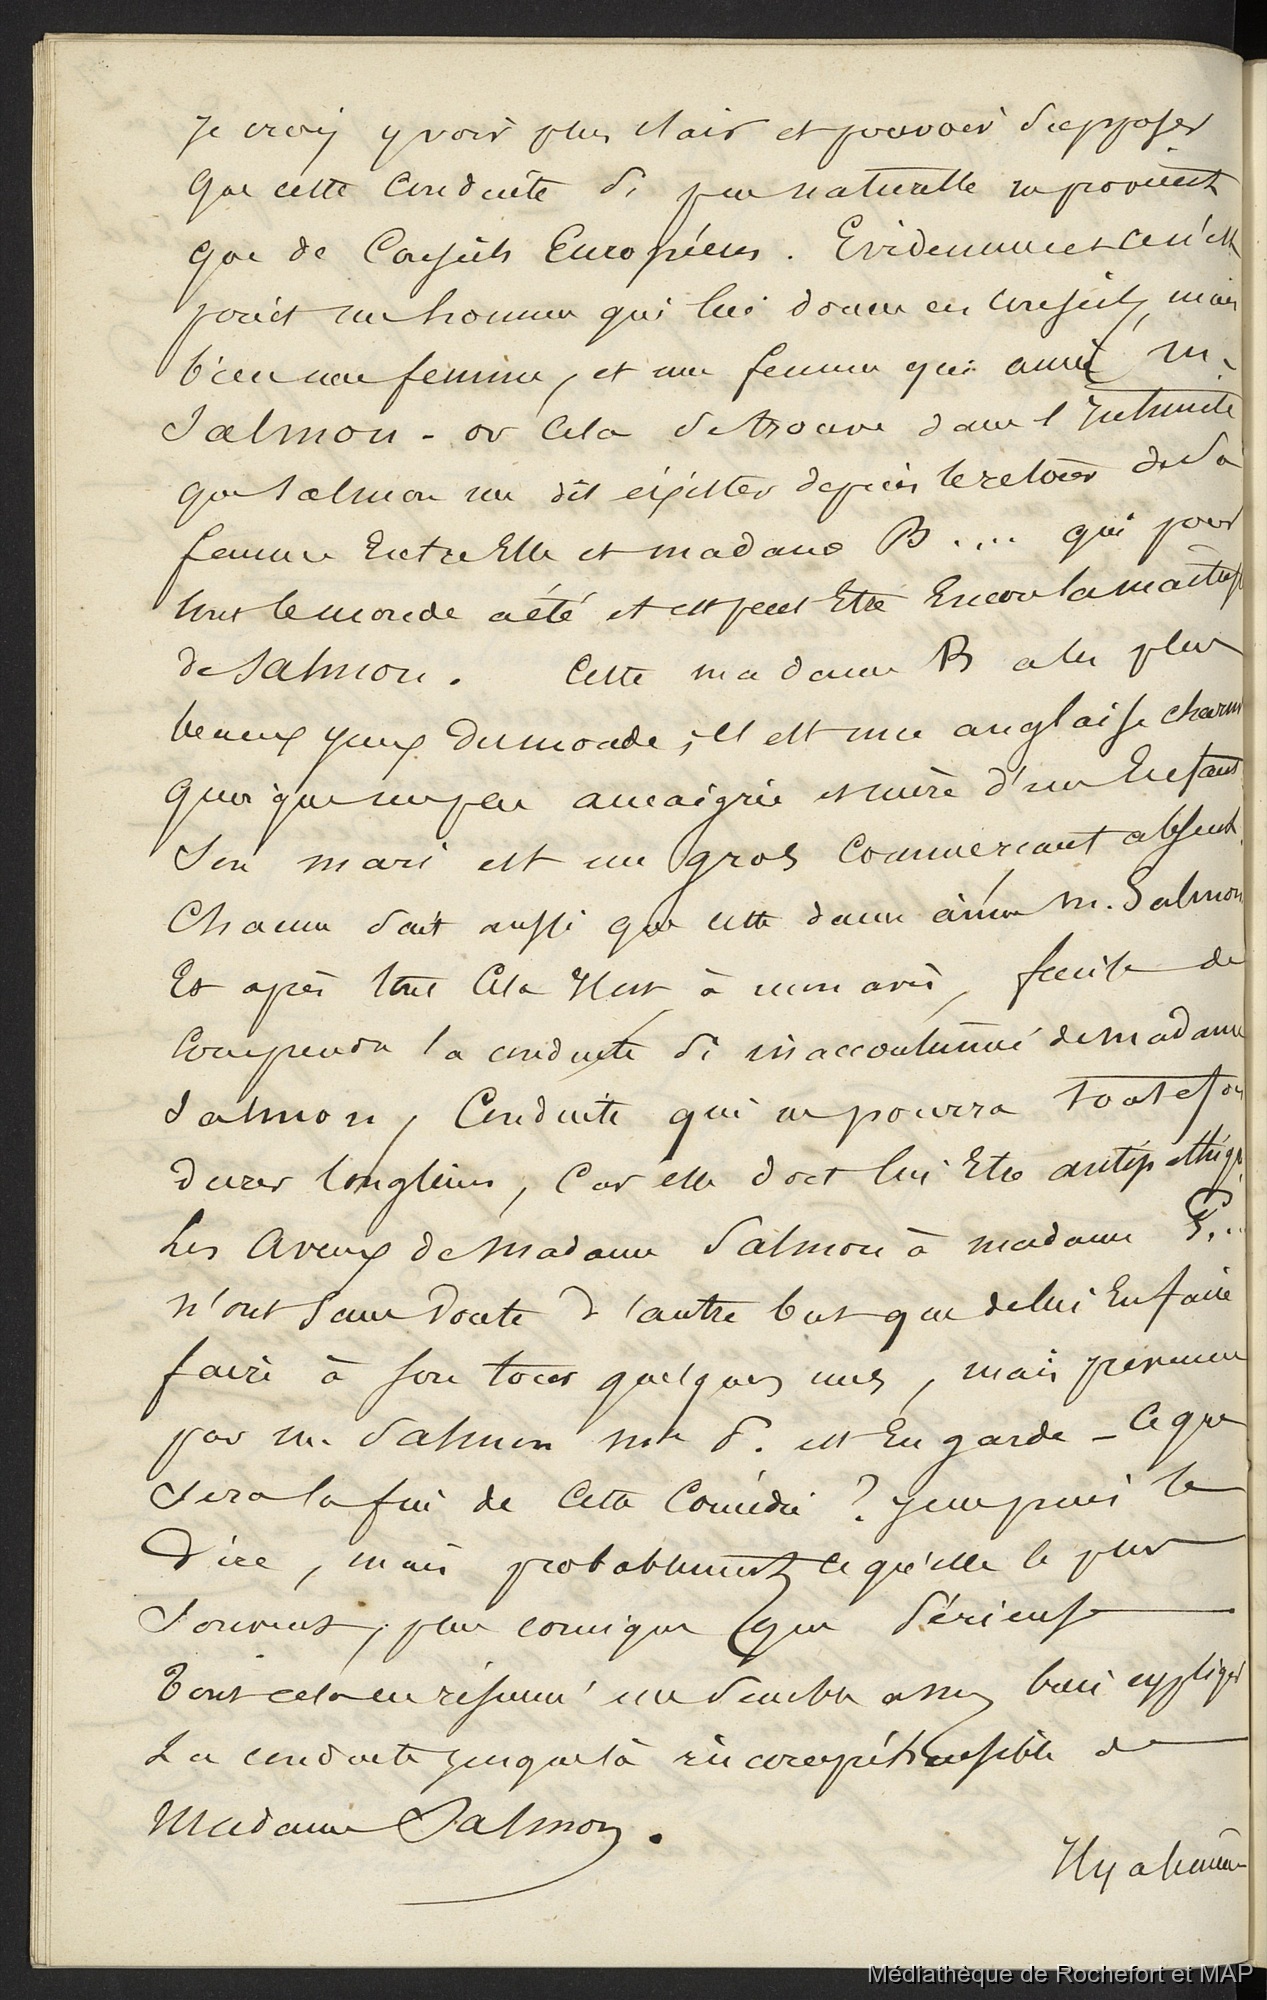 Je crois y voir plus clair et pouvoir supposer
que cette conduite si peu naturelle ne provient
que de Conseils Européens. Evidemment ce n'est
point un homme qui lui donne ces conseils, mais
bien une femme, et une femme qui aime M.
Salmon - or cela se trouve dans l'Intimité
que Salmon me dit éxister depuis le retour de sa
femme Entre Elle et madame B.... qui pour
tout le monde a été et est peut Etre Encore la maîtresse
de Salmon. Cette madame B a les plus
beaux yeux du monde, est une anglaise
quoique un peu amaigrie et mère d'un Enfant
Son mari est un gros Commerçant absent.
Chacun sait aussi que cette dame aime M. Salmon
Et après tout cela Il est à mon avis, facile de
Comprendre la conduite si inaccoutumée de Madame
Salmon, Conduite qui ne pourra toutefois
durer longtems, Car elle doit lui Etre antipathique
Les Aveux de Madame Salmon à madame S...
n'ont sans Doute d'autre but que de lui En faire
faire à son tour quelques uns, mais prévenue
par M. Salmon Me S. est En garde - Ce que
Sera la fin de Cette Comédie? je ne puis le
Dire, mais probablement ce qu'elle le plus
Souvent, plus comique que Sérieuse
Tout cela en résumé me semble assez bien expliquer
La conduite jusque là incompréhensible de
Madame Salmon.
Il y a
Médiathèque de Rochefort et MAP